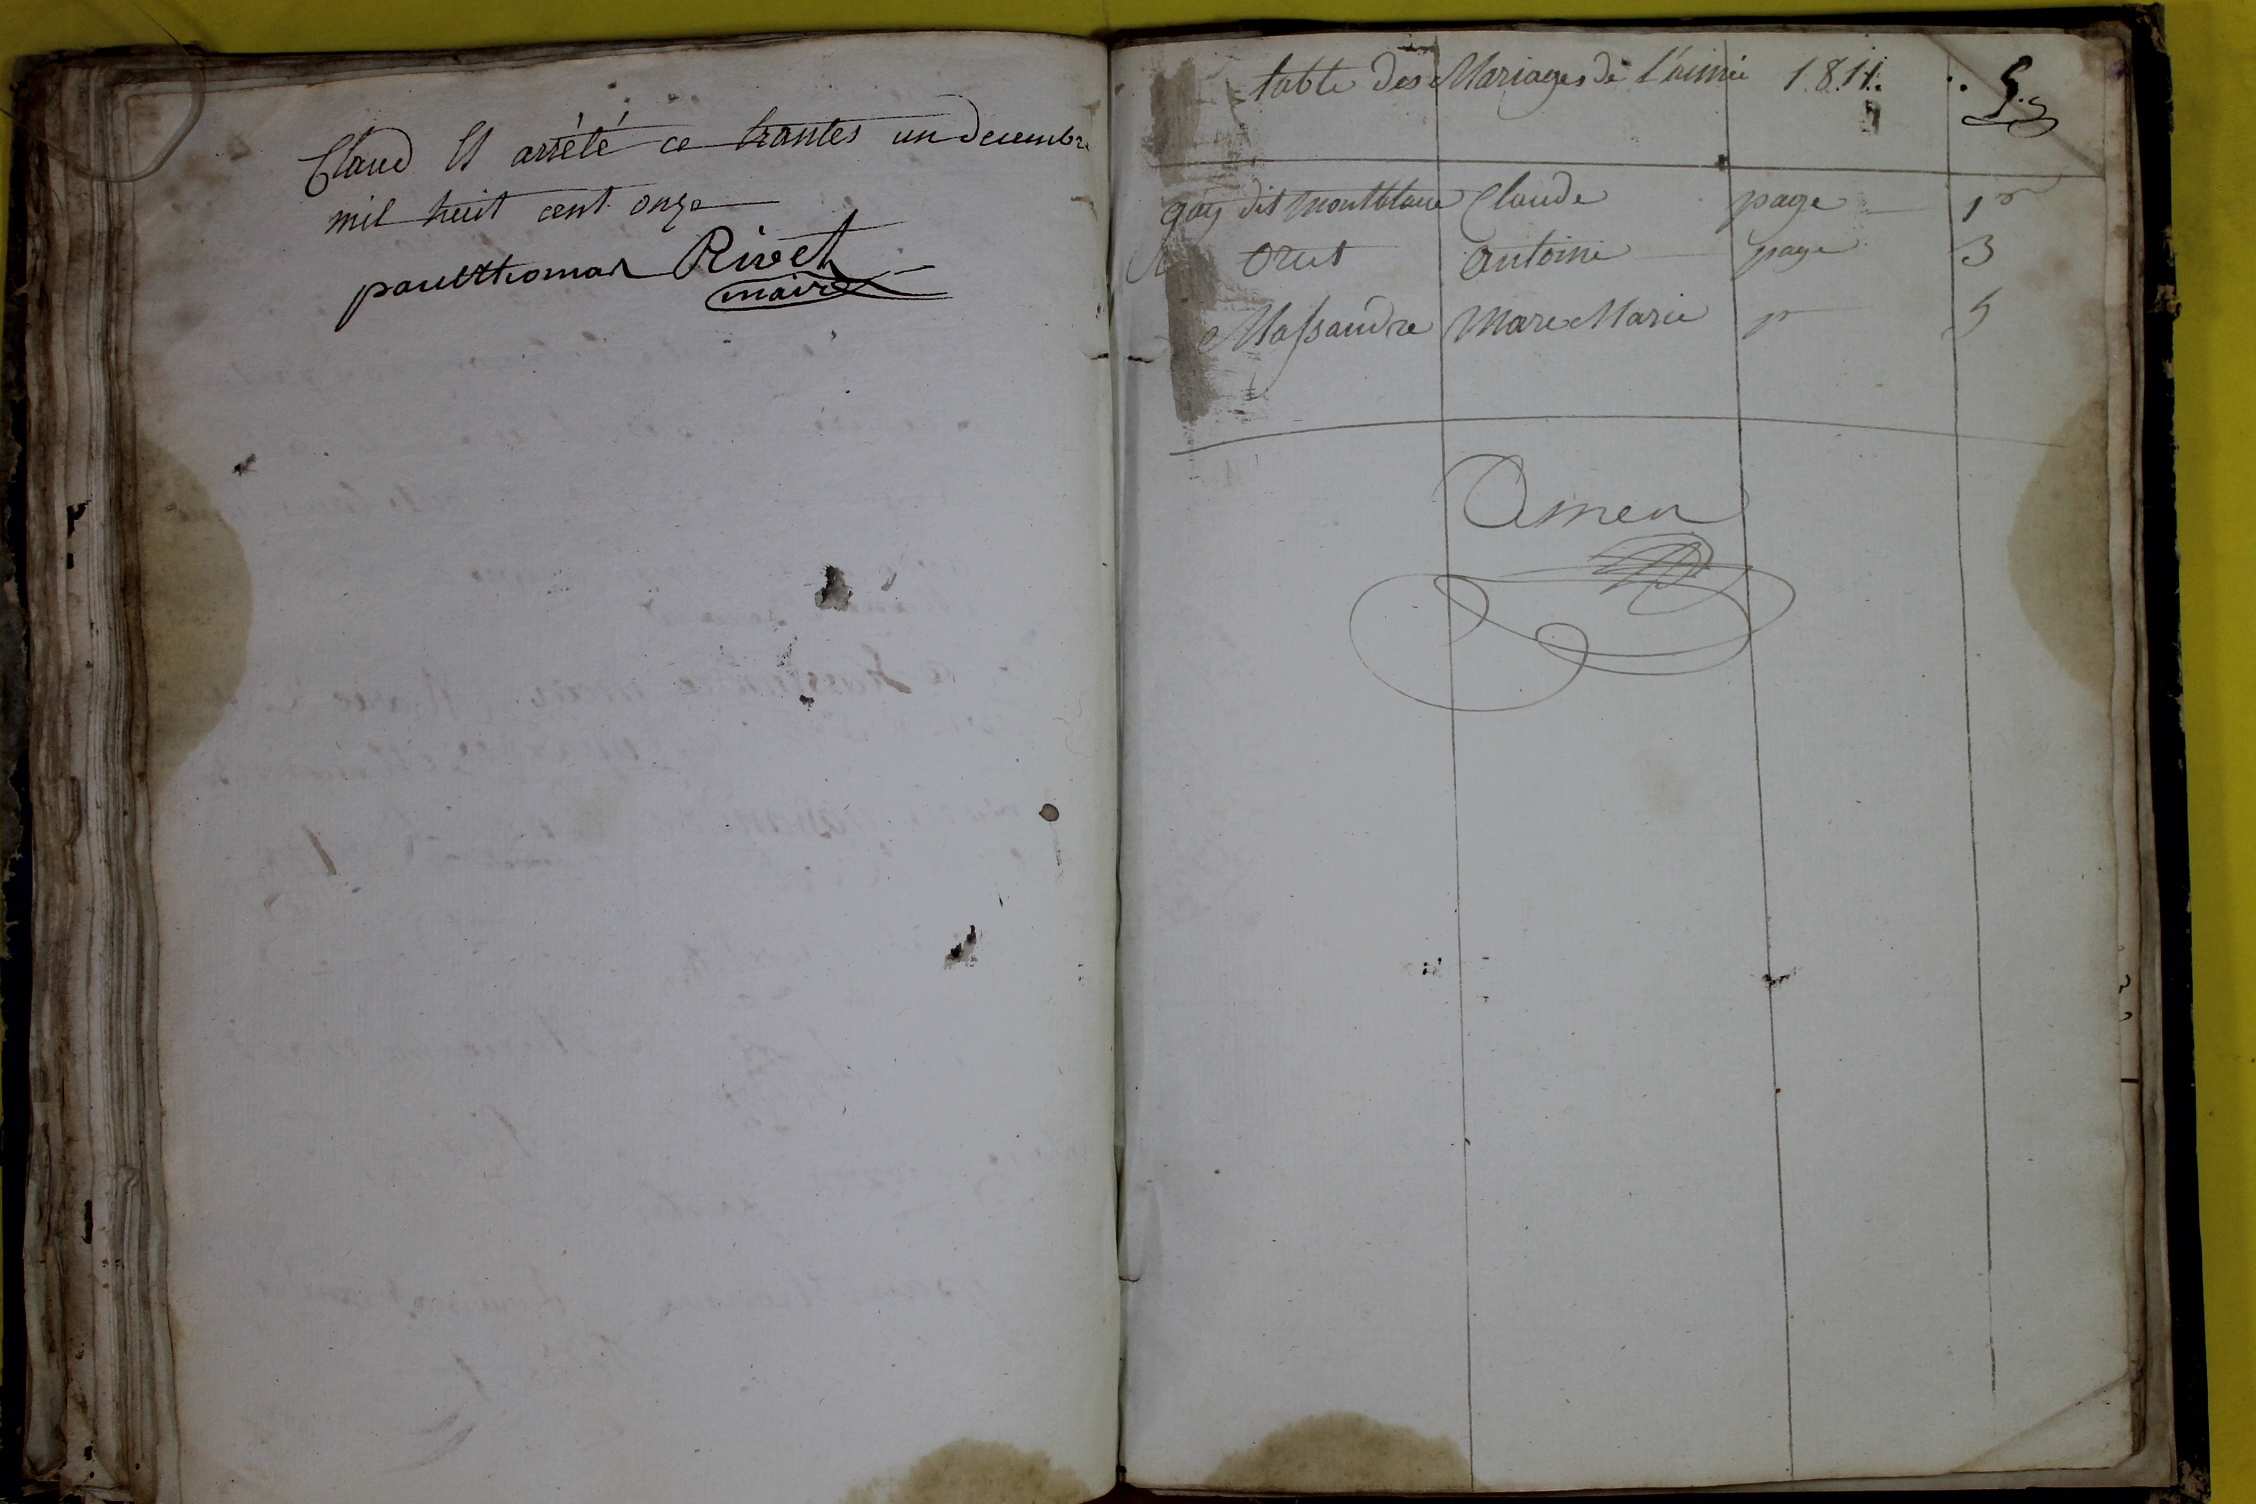 Claud Et arrêté ce trantes un decembre
mil huit cent onze
paul thomas Rivet
maire
table des Mariages de l'année 1811.
5
gay dit montblanc Claude page 1r
Orus Antoine page 3
Massandre Marc Marie p 5
Amen